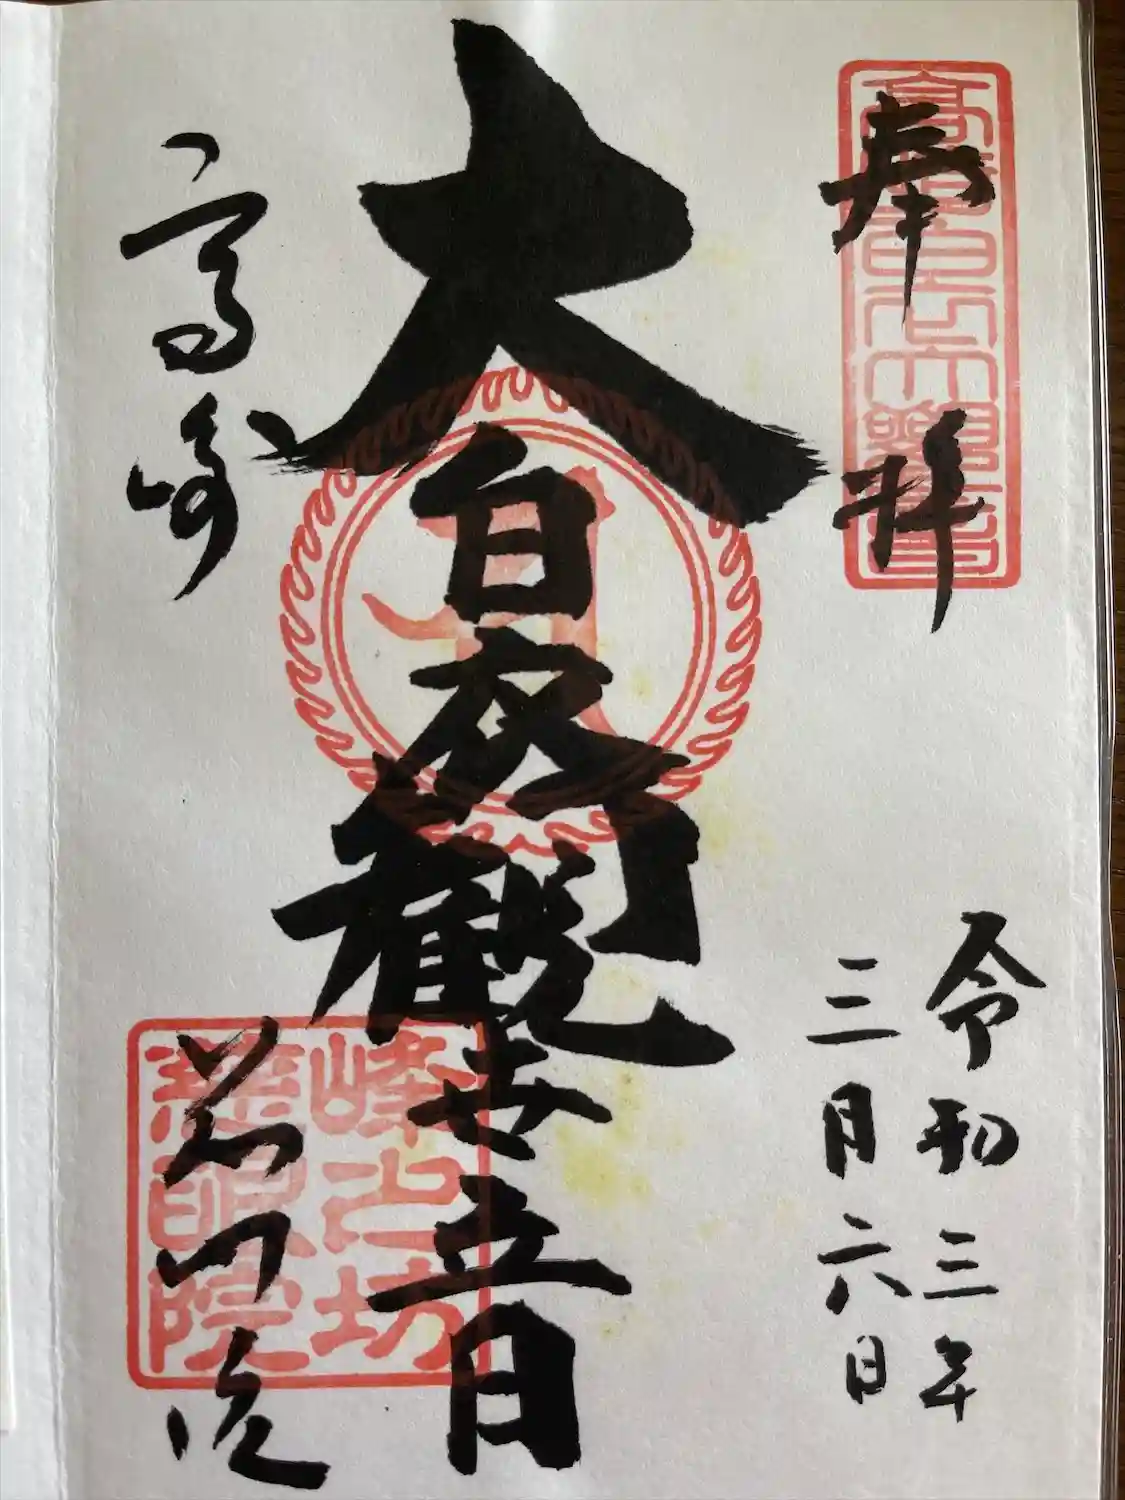 奉拝
高崎白衣大観音
令和三年
三月六日
大白衣観世音
峰之坊
慈眼院
高崎
慈眼院